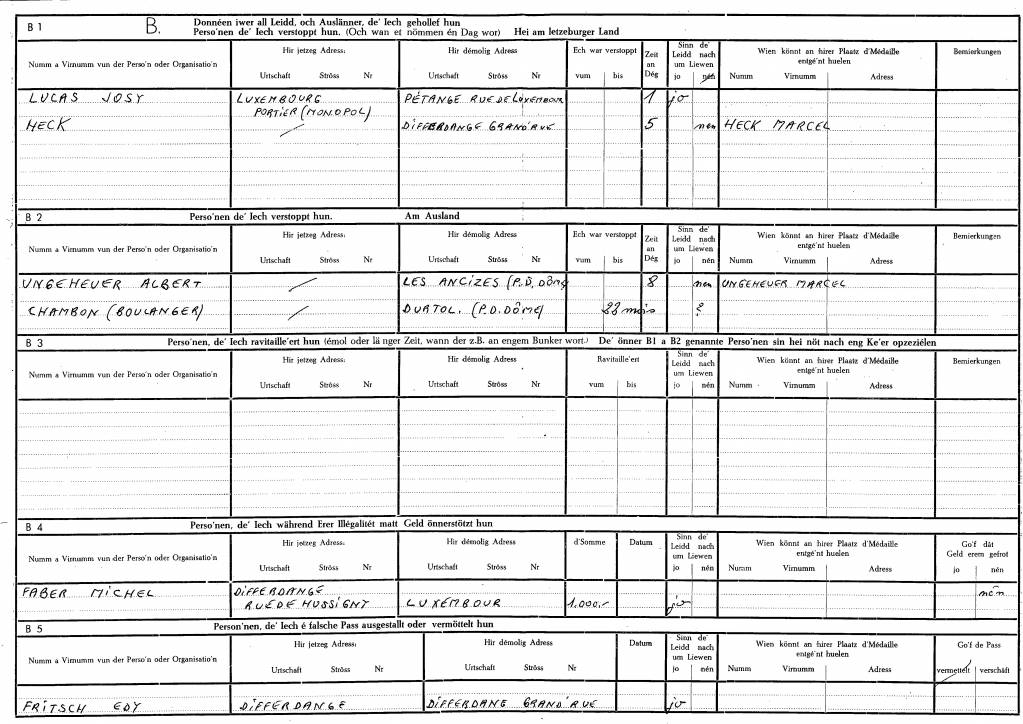 B 1
B.
Donnéen iwer all Leidd, och Auslänner, de' Iech gehollef hun
Perso'nen de' Iech verstoppt hun. (Och wan et nömmen én Dag wor) Hei am letzeburger Land
Numm a Virnumm vun der Perso'n oder Organisatio'n
Hir jetzeg Adress:
Urtschaft Ströss Nr
Hir démolig Adress
Urtschaft Ströss Nr
Ech war verstoppt
vum bis
Zeit an Dég
Sinn de' Leidd nach um Liewen
jo nén
Wien könnt an hirer Plaatz d'Médaille entgé'nt huelen
Numm Virnumm Adress
Bemierkungen
LUCAS JOSY LUXEMBOURG PÉTANGE RUE DE LUXEMBOUR 1 jo
PORTIER (MONOPOL)
HECK DIFFERDANGE GRAND'RUE 5 nen HECK MARCEL
B 2
Perso'nen de' Iech verstoppt hun. Am Ausland
Numm a Virnumm vun der Perso'n oder Organisatio'n
Hir jetzeg Adress:
Urtschaft Ströss Nr
Hir démolig Adress
Urtschaft Ströss Nr
Ech war verstoppt
vum bis
Zeit an Dég
Sinn de' Leidd nach um Liewen
jo nén
Wien könnt an hirer Plaatz d'Médaille entgé'nt huelen
Numm Virnumm Adress
Bemierkungen
UNGEHEUER ALBERT LES ANCIZES (P.D. DÔME 8 nen UNGEHEUER MARCEL
CHAMBON (BOULANGER) DURTOL. (P.D. DÔME) mois ?
B 3
Perso'nen, de' Iech ravitaille'ert hun (émol oder lä nger Zeit, wann der z.B. an engem Bunker wort.) De' önner B1 a B2 genannte Perso'nen sin hei nöt nach eng Ke'er opzeziélen
Numm a Virnumm vun der Perso'n oder Organisatio'n
Hir jetzeg Adress:
Urtschaft Ströss Nr
Hir démolig Adress
Urtschaft Ströss Nr
Ravitaille'ert
vum bis
Sinn de' Leidd nach um Liewen
jo nén
Wien könnt an hirer Plaatz d'Médaille entgé'nt huelen
Numm Virnumm Adress
Bemierkungen
B 4
Perso'nen, de' Iech während Erer Illégalitét matt Geld önnerstötzt hun
Numm a Virnumm vun der Perso'n oder Organisatio'n
Hir jetzeg Adress:
Urtschaft Ströss Nr
Hir démolig Adress
Urtschaft Ströss Nr
d'Somme
Datum
Sinn de' Leidd nach um Liewen
jo nén
Wien könnt an hirer Plaatz d'Médaille entgé'nt huelen
Numm Virnumm Adress
Go'f dât Geld erem gefrot
jo nén
FABER MICHEL DIFFERDANGE nên
RUE DE HUSSIGNY LUXEMBOUR 1.000.- jo
B 5
Perso'nen, de' Iech é falsche Pass ausgestallt oder vermöttelt hun
Numm a Virnumm vun der Perso'n oder Organisatio'n
Hir jetzeg Adress:
Urtschaft Ströss Nr
Hir démolig Adress
Urtschaft Ströss Nr
Datum
Sinn de' Leidd nach um Liewen
jo nén
Wien könnt an hirer Plaatz d'Médaille entgé'nt huelen
Numm Virnumm Adress
Go'f de Pass
vermettelt verschäft
FRITSCH EDY DIFFERDANGE DIFFERDANG GRAND'RUE jo